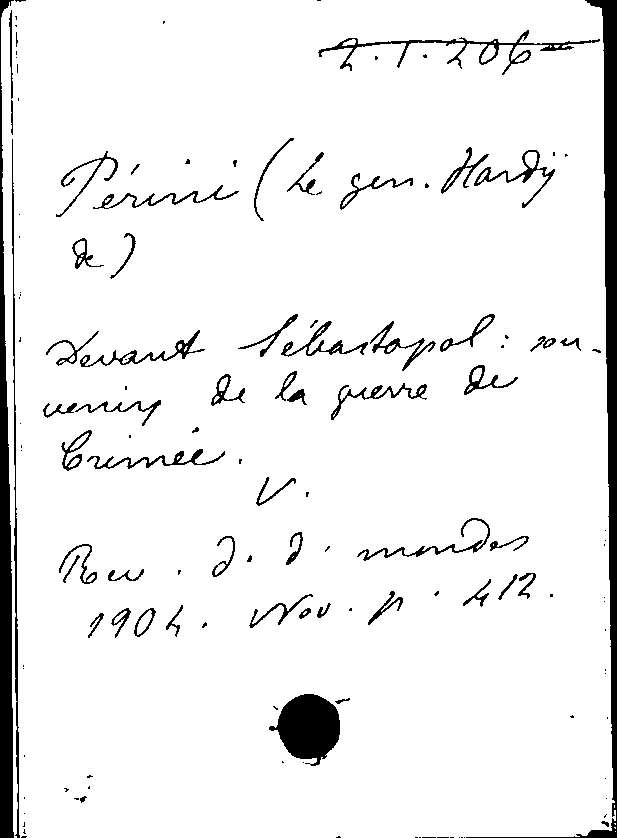 2.1.206
Périni (Le gen. Hardÿ
de)
Devant Sébastopol : sou-
venirs de la guerre de
Crimée.
V.
Rev. d. d. mondes
1904. Nov. p. 412.